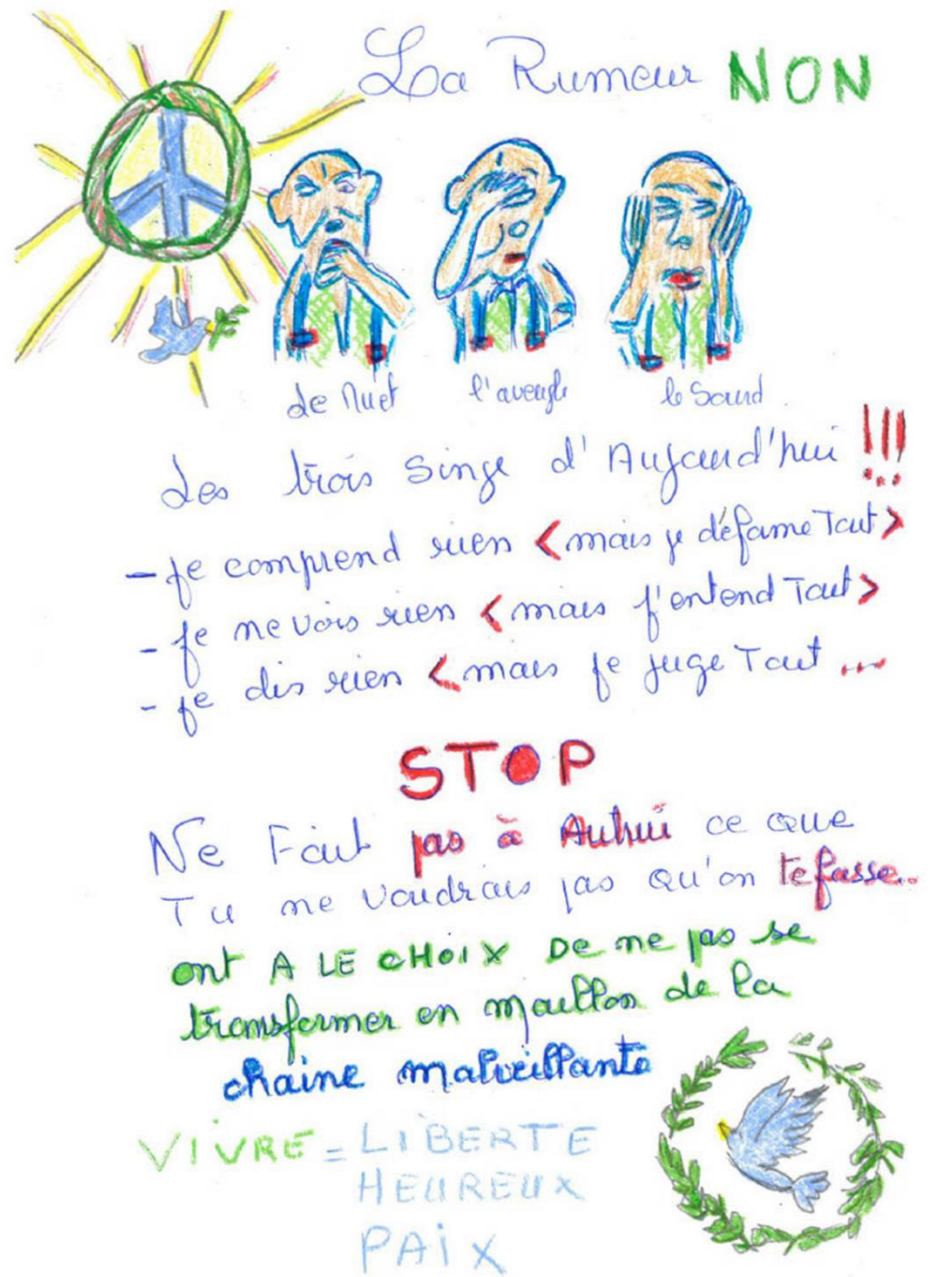 La Rumeur NON
de Muet l'aveugle le Sourd
Les trois singe d'Aujourd'hui !!!
- je comprend rien <mais je défame Tout>
- je ne vois rien <mais j'entend Tout>
- je dis rien <mais je juge Tout ...
STOP
Ne Fait pas à Autrui ce que
Tu ne voudrais pas qu'on te fasse..
ont A LE CHOIX De ne pas se
transformer en maillon de la
chaine malveillante
VIVRE = LIBERTE
HEUREUX
PAIX